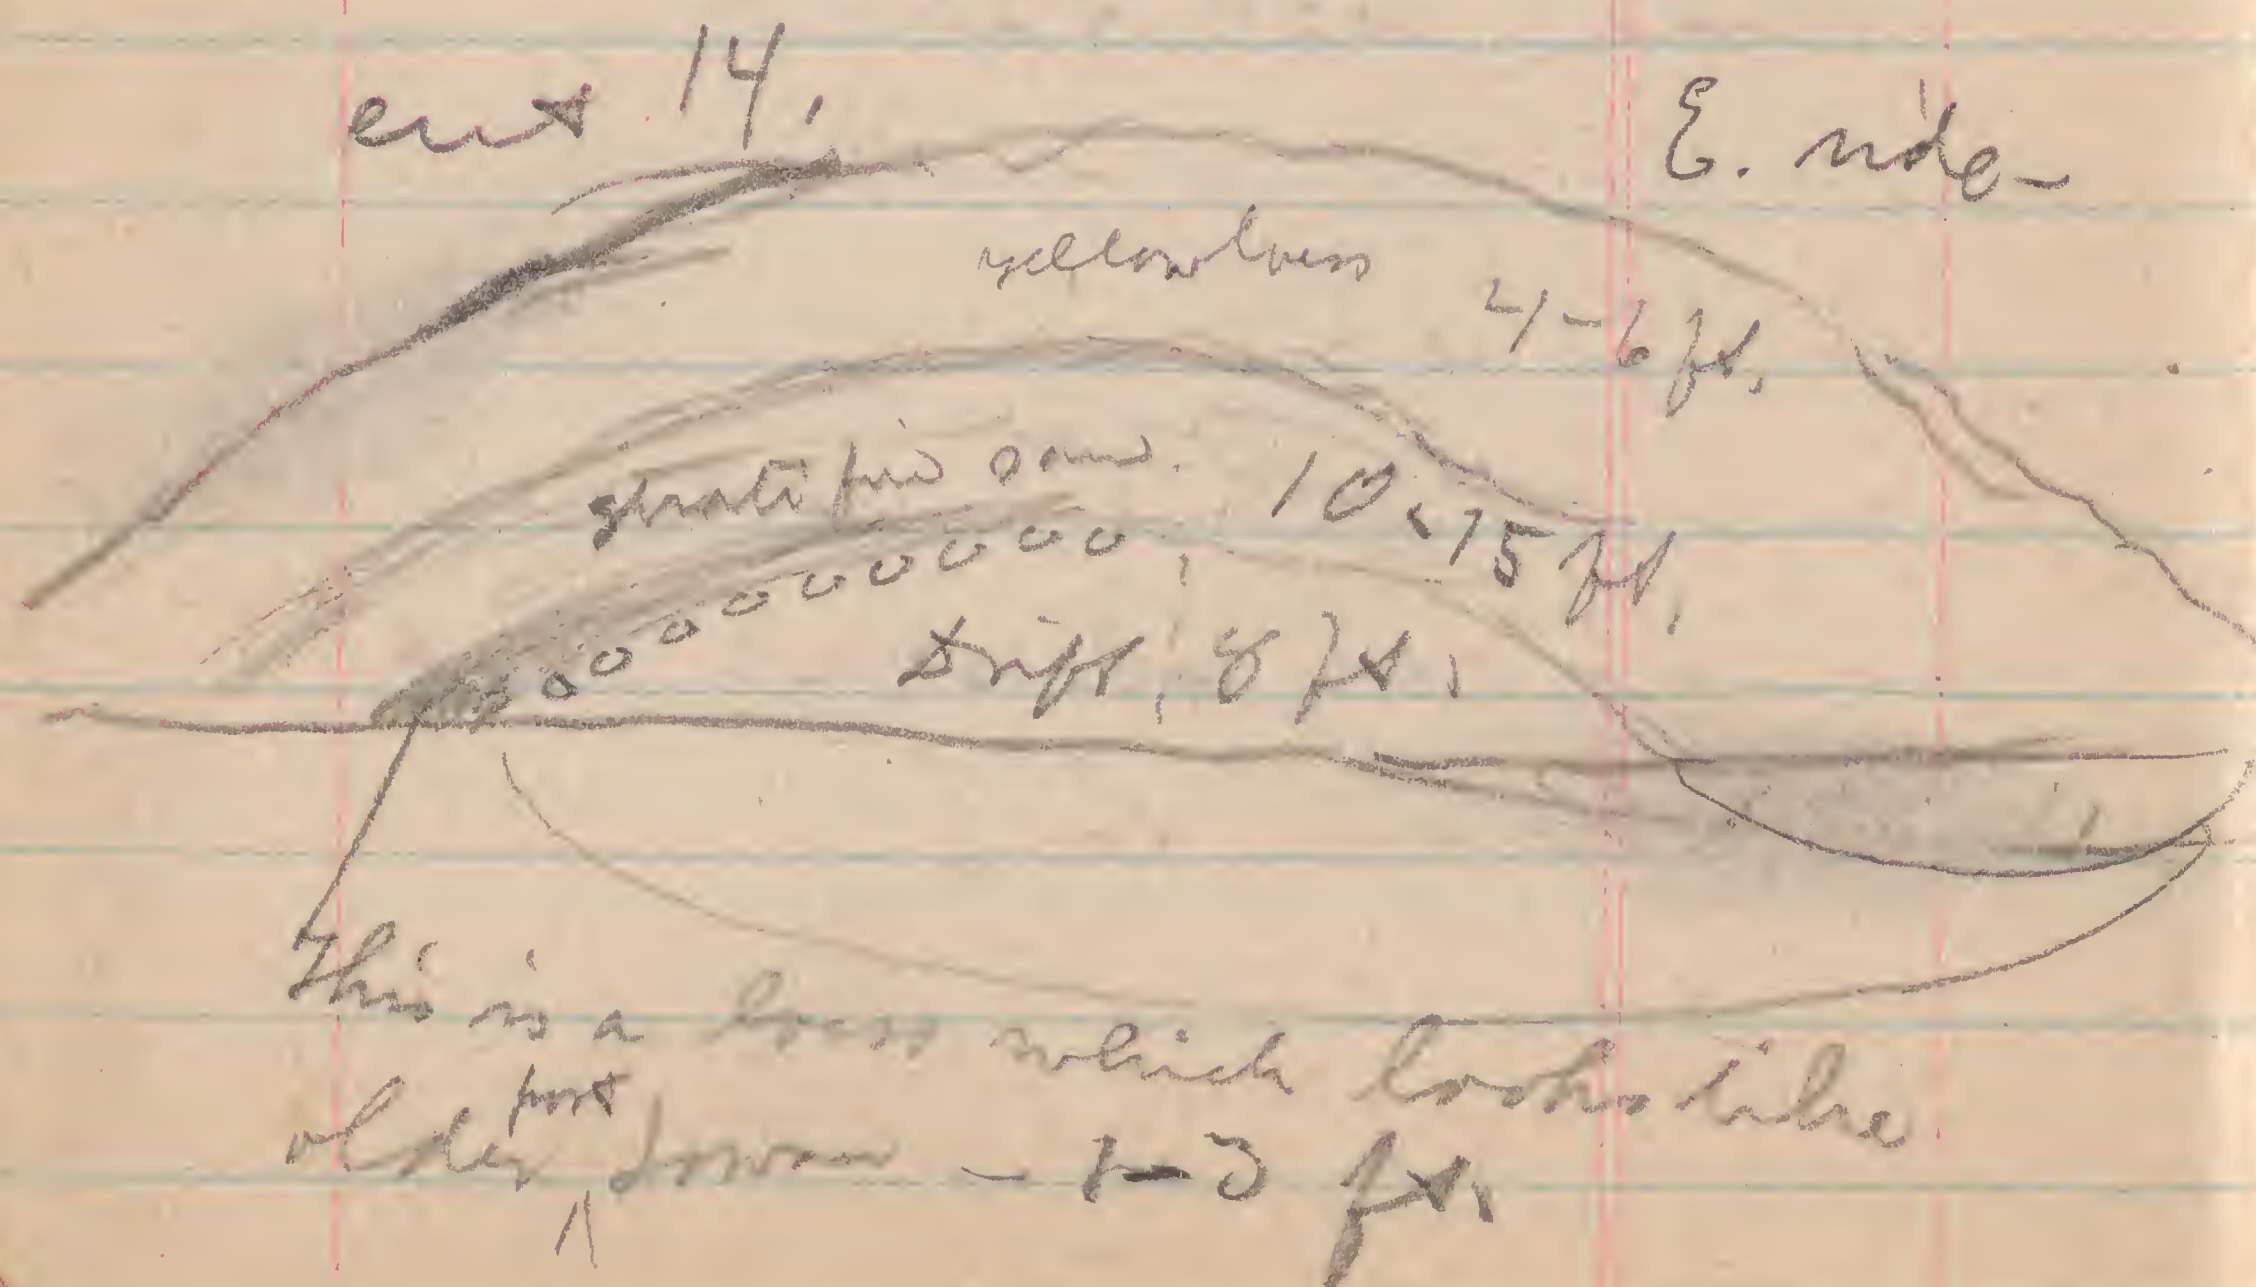 cut 14.
E. side
yellow loess
4-6 ft.
strati fied sand. 10-15 ft.
Drift, 8 ft.
This is a loess which looks like
older post Iowan - 1-3 ft.